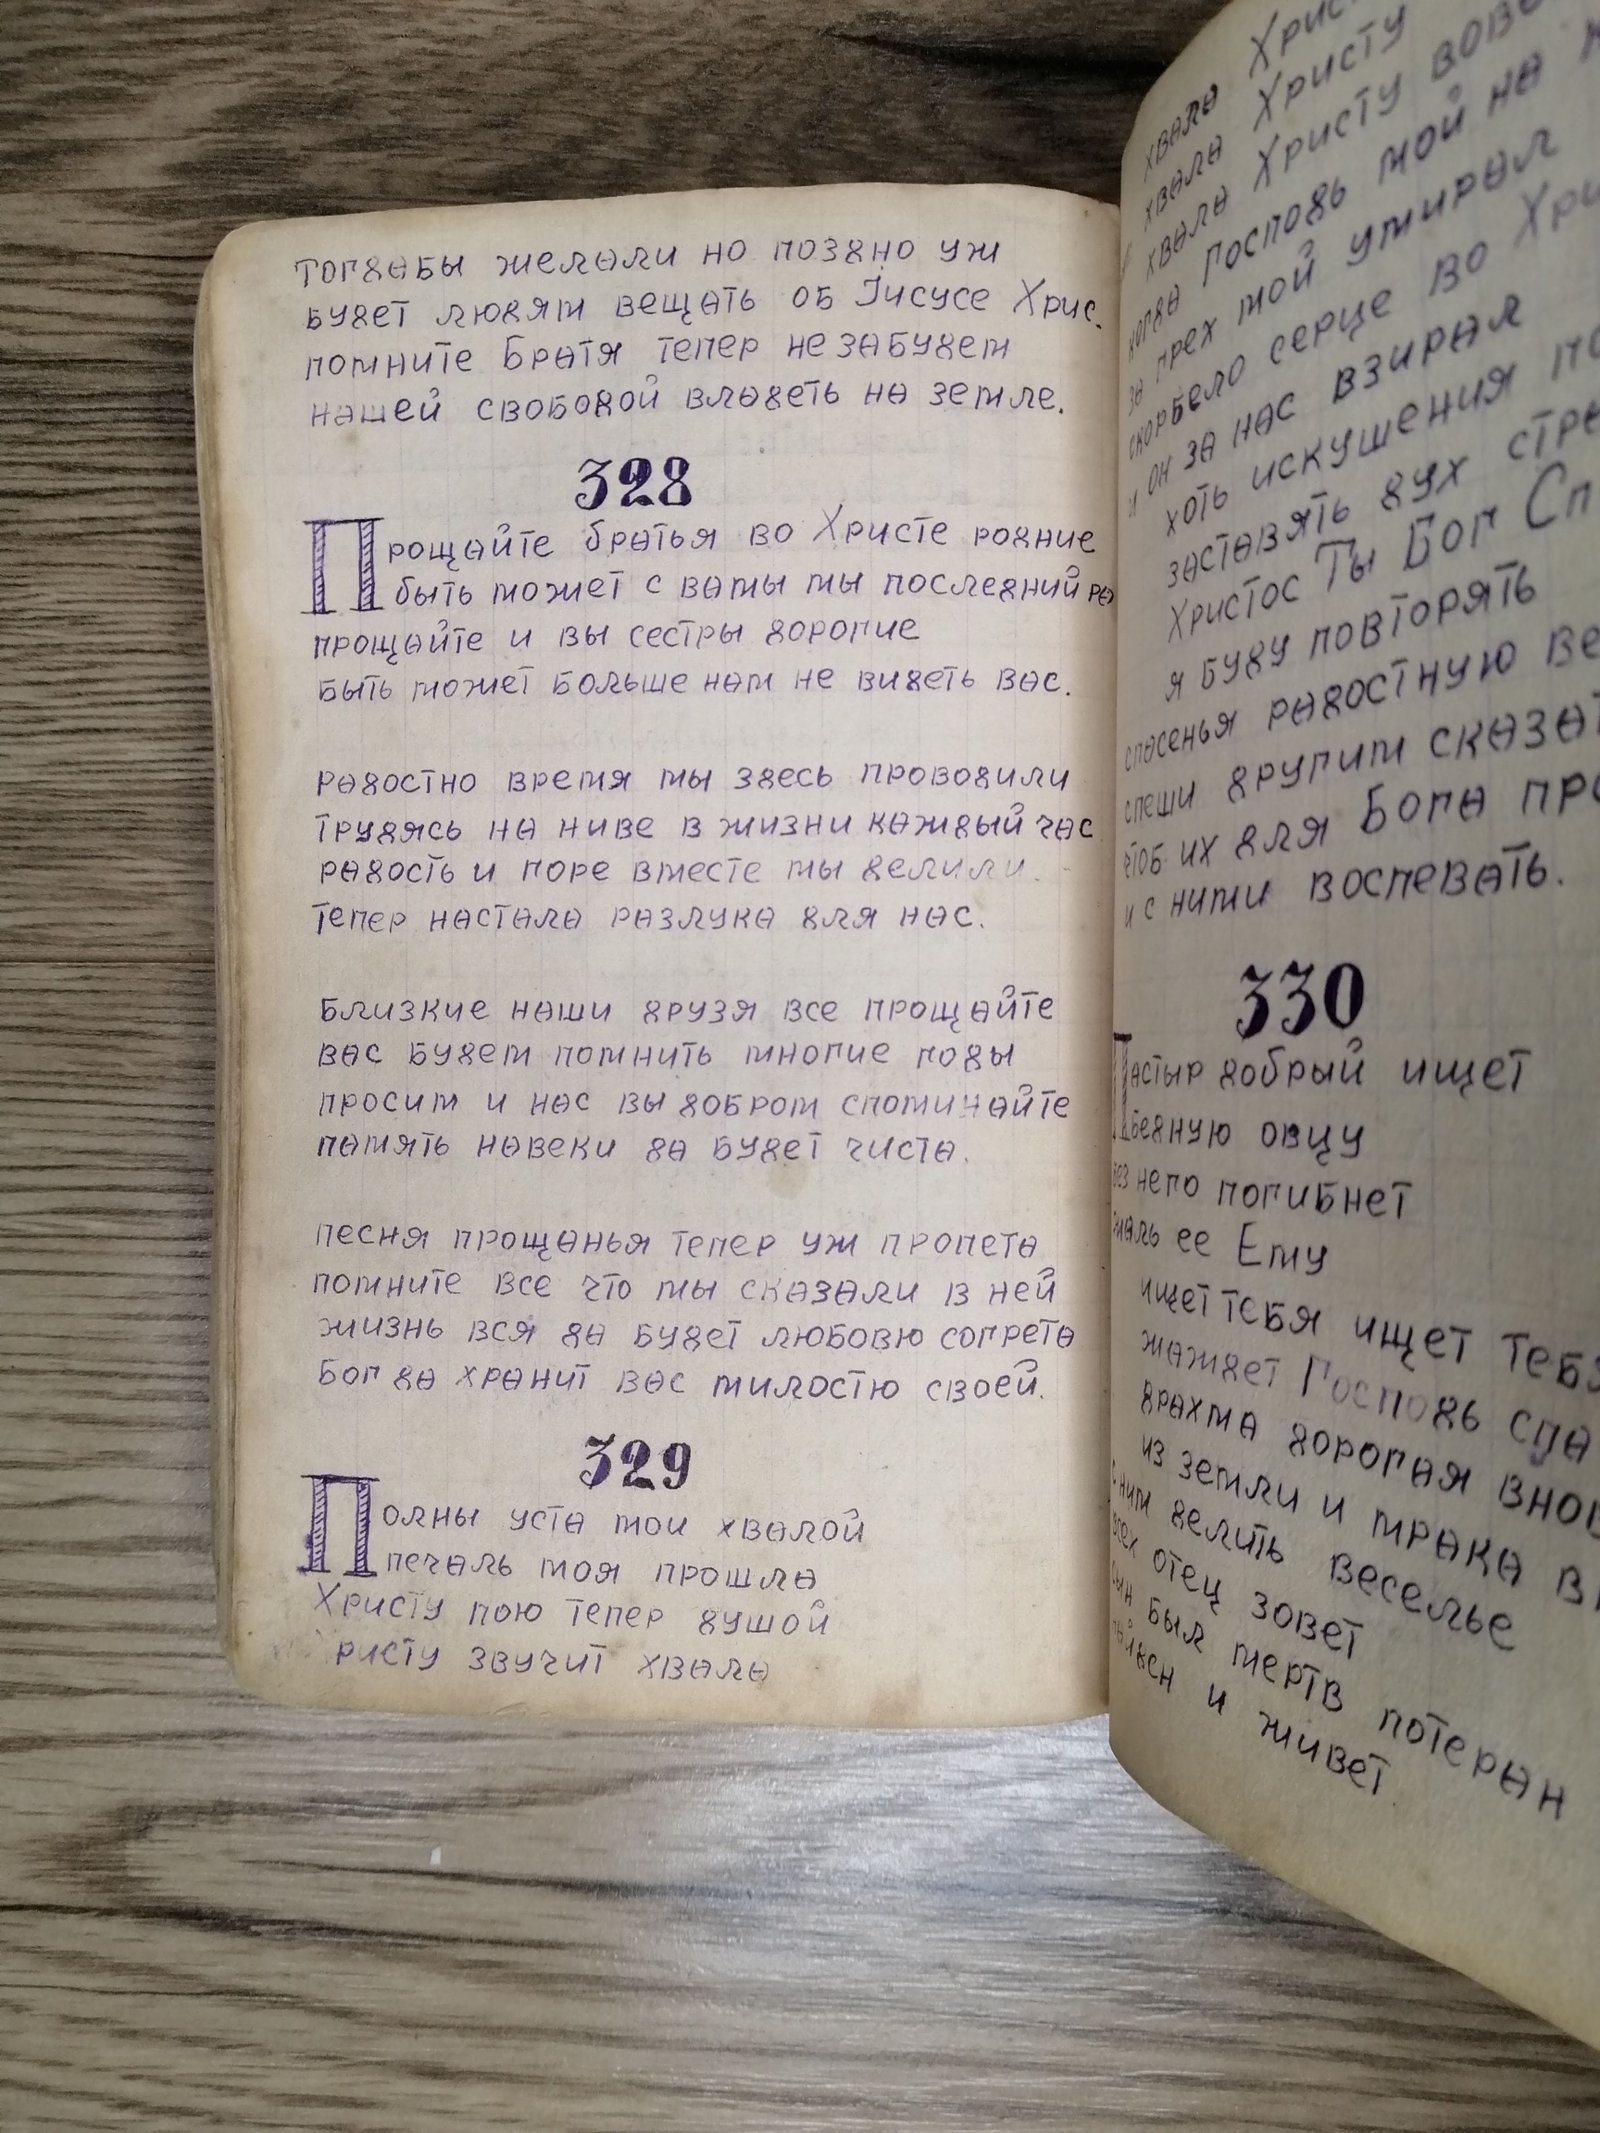 тогдабы желали но поздно уж
будет людям вещать об Іисусе Хрис.
помните Братя тепер не забудем
нашей свободой владеть на земле.
328
Прощайте братья во Христе родние
быть может с вамы мы последний ра
прощайте и вы сестры дорогие
быть может больше нам не видеть вас.
радостно время мы здесь проводили
трудясь на ниве в жизни каждый час
радость и горе вместе мы делили.
тепер настала разлука для нас.
близкие наши друзя все прощайте
вас будем помнить многие годы
просим и нас вы добром споминайте
память навеки да будет чиста.
песня прощанья тепер уж пропета
помните все что мы сказали в ней
жизнь вся да будет любовю согрета
Бог да хранит вас милостю своей.
329
Полны уста мои хвалой
печаль моя прошла
Христу пою тепер душой
ристу звучит хвала
хвала Хрис
хвала Христу
хвала Христу вове
когда Господь мой на к
за грех мой умирал
скорбело серце во Хри
и он за нас взирал
хоть искушения по
заставять дух стра
Христос Ты Бог Сп
я буду повторять
спасенья радостную ве
спеши другим сказат
чтоб их для Бога про
и с ними воспевать.
330
Пастыр добрый ищет
бедную овцу
без него погибнет
жаль ее Ему
ищет тебя ищет тебя
жаждет Господь спа
драхма дорогая внов
из земли и мрака в
с ним делить веселье
всех отец зовет
сын был мертв потерян
найден и живет